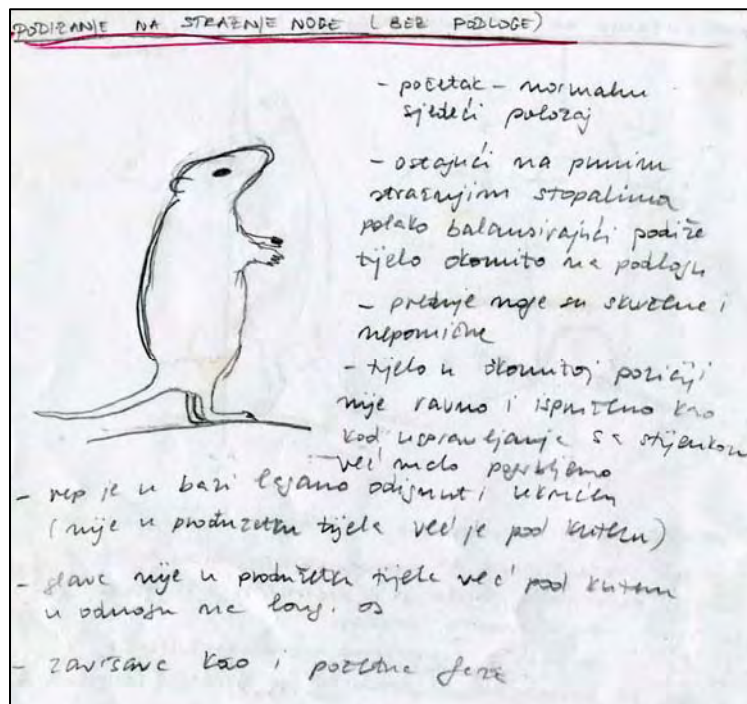 PODIZANJE NA STRAŽNJE NOGE (BEZ PODLOGE)
- početak - normalni
sjedeći položaj
- ostajući na punim
stražnjim stopalima
polako balansirajući podiže
tijelo okomito na podlogu
- prednje noge su skvrčene i
nepomične
- tijelo u okomitoj poziciji
nije ravno i ispruženo kao
kod uspravljanja sa stijenkom
već malo pogrbljeno
- rep je u bazi lagano odignut i ukrućen
(nije u produžetku tijela već je pod kutem)
- glava nije u produžetku tijela već pod kutem
u odnosu na long. os
- završava kao i početna faza